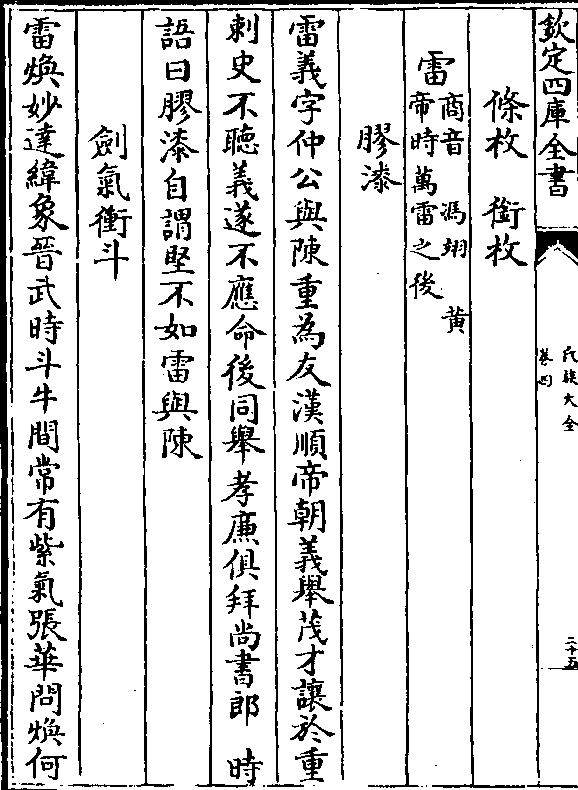 欽定四庫全書
氏族大全
卷四
二十五
條枚　銜枚
雷商音　馮翊　黄
帝時萬雷之後
膠漆
雷義字仲公與陳重為友漢順帝朝義舉茂才讓於重
刺史不聽義遂不應命後同舉孝廉俱拜尚書郎　時
語曰膠漆自謂堅不如雷與陳
劍氣衝斗
雷煥妙達緯象晉武時斗牛間常有紫氣張華問煥何